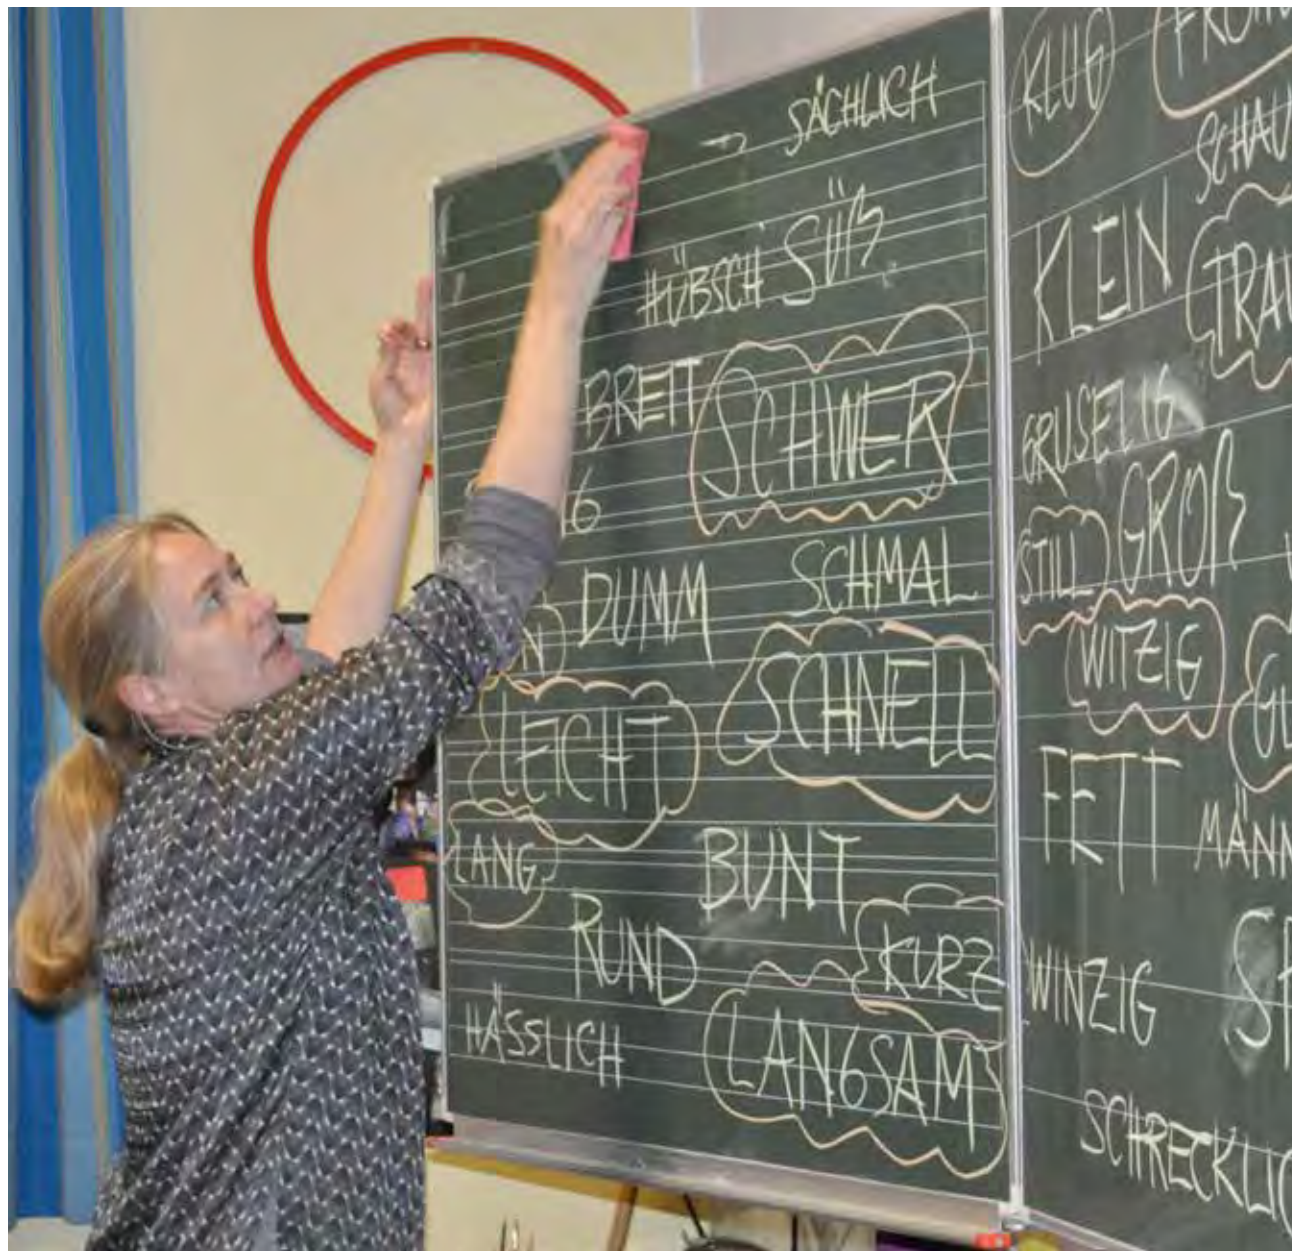 SÄCHLICH
HÜBSCH SÜß
BREIT SCHWER
DUMM SCHMAL
LEICHT SCHNELL
LANG BUNT
RUND KURZ
HÄSSLICH LANGSAM
KLUG
KLEIN
GRUSELIG
STILL GROß
WITZIG
FETT
WINZIG